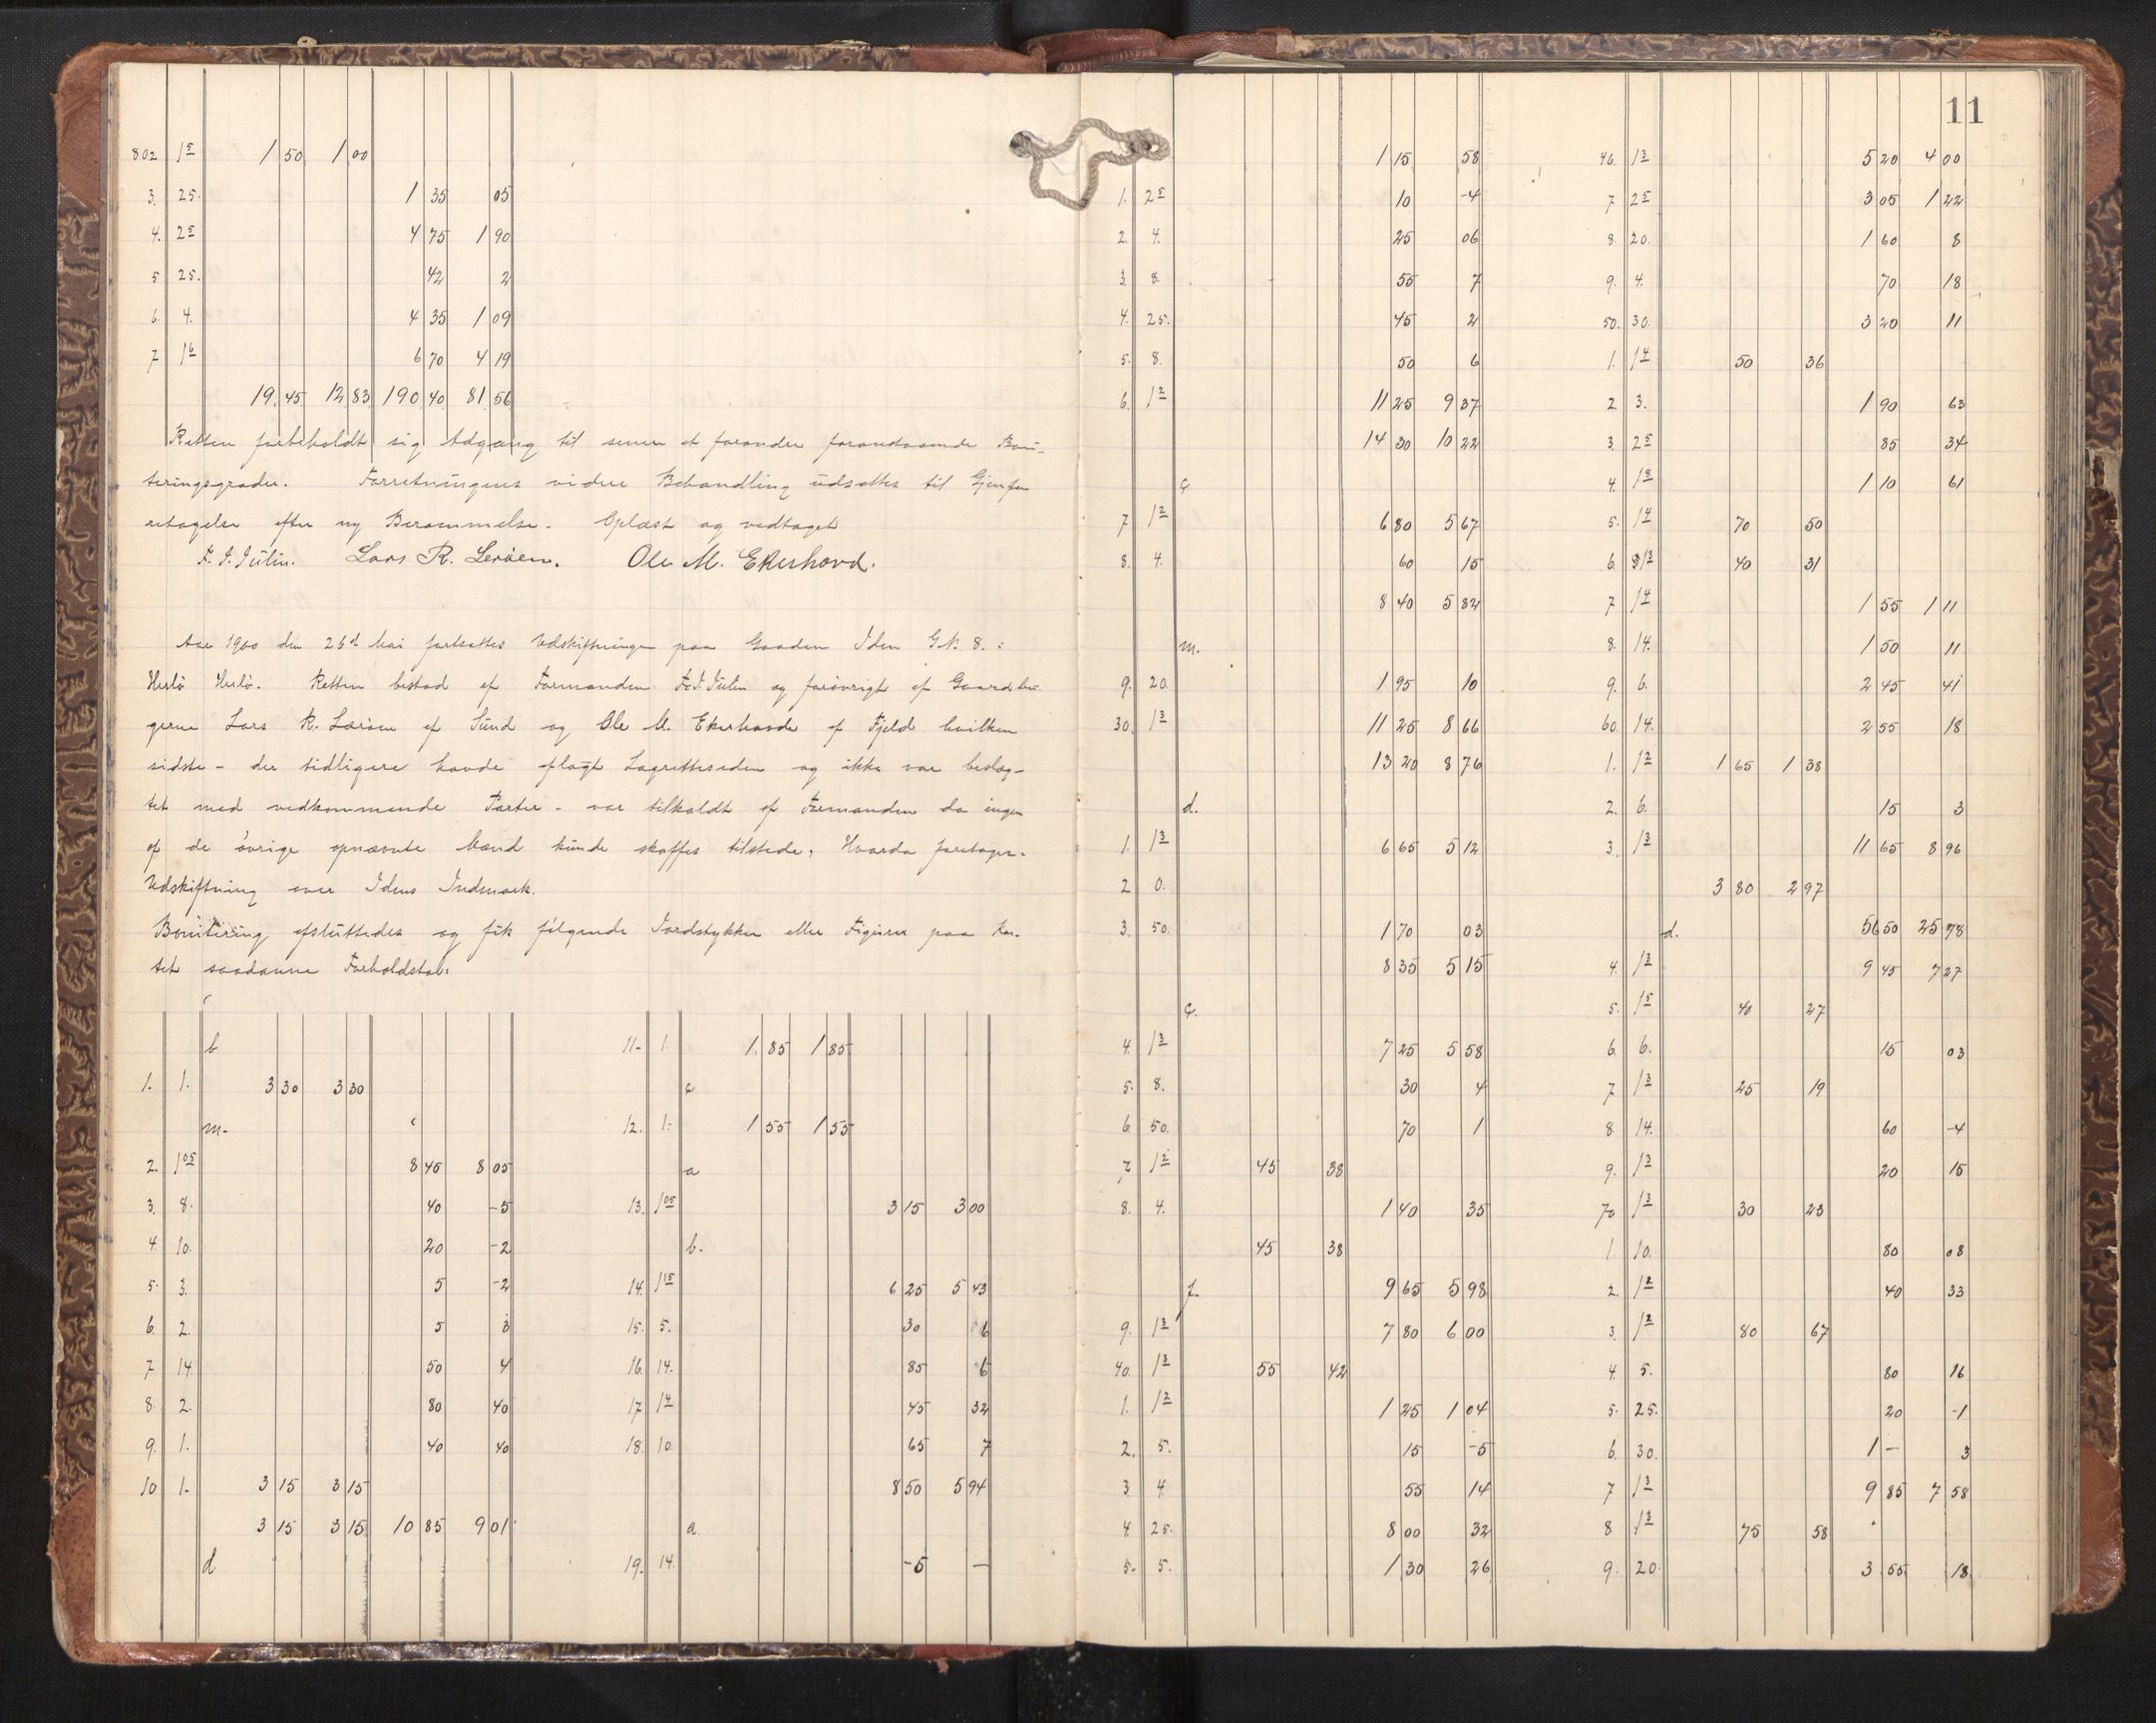 802 1⁵ 1 50 1 00
3. 25. 1 35 05
4. 2⁵ 4 75 1 90
5 25. 42 2
6. 4. 4 35 1 09
7 1⁶ 6 70 4 19
19.45 12 83 190 40 81 56
Retten forbeholdt sig Adgang til senere at forandre foranstaaende Boni-
teringsgrader. Forretningens videre Behandling udsattes til Gjenfor
etagelse efter ny Berammelse. Oplæst og vedtaget
F. J. Julin. Lars R. Lerøen. Ole M. Ekerhovd.
Aar 1900 den 26d Mai fortsattes Udskiftningen paa Gaarden Iden G.N. 8. i
Herlø Herlö. Retten bestod af Formanden F. J. Julin og forøvrigt af Gaardbru-
gerne Lars R. Lerøen af Sund og Ole M. Ekerhovde af Fjeld hvilken
sidste - der tidligere havde aflagt Lagretteseden og ikke var beslæg-
tet med vedkommende Parter - var tilkaldt af Formanden da ingen
af de øvrige opnævnte Mænd kunde skaffes tilstede. Hvorda foretoges
Udskiftning over Idens Indmark.
Bonitering afsluttedes og fik følgende Jordstykker eller Figurer paa Kar-
tet saadanne Forholdstal:
b
1. 1. 3 30 3 30
m.
2. 1⁰⁵ 8 45 8 05
3. 8. 40 -5
4. 10. 20 -2
5. 3. 5 -2
6. 2. 5 3
7 14 50 4
8. 2. 80 40
9. 1. 40 40
10 1. 3 15 3 15
3 15 3 15 10 85 9 01
d
11. 1. 1 85 1 85
c
12. 1. 1 55 1 55
a
13. 1⁰⁵ 3 15 3 00
b.
14. 1¹⁵ 6 25 5 43
15. 5. 30 6
16. 14. 85 6
17 1⁴ 45 32
18. 10. 65 7
8 50 5 94
a.
19. 14. -5 —
11
1 15 58
1. 2⁵ 10 -4
2. 4. 25 06
3. 8. 55 7
4. 25. 45 2
5. 8. 50 6
6. 1² 11 25 9 37
14 30 10 22
c
7 1² 6 80 5 67
8. 4. 60 15
8 40 5 82
m.
9. 20. 1 95 10
30. 1³ 11 25 8 66
13 20 8 76
d.
1. 1³ 6 65 5 12
2 0.
3. 50. 1 70 03
8 35 5 15
c.
4. 1³ 7 25 5 58
5. 8. 30 4
6. 50. 70 1
7. 1² 45 38
8. 4. 1 40 35
45 38
f. 9 65 5 98
9. 1³ 7 80 6 00
40. 1³ 55 42
1. 1² 1 25 1 04
2. 5. 15 -5
3. 4 55 14
4. 25. 8 00 32
5. 5. 1 30 26
46. 1³ 5 20 4 00
7 2⁵ 3 05 1 22
8. 20. 1 60 8
9. 4. 70 18
50. 30. 3 20 11
1. 1⁴ 50 36
2 3. 1 90 63
3. 2⁵ 85 34
4. 1⁸ 1 10 61
5. 1⁴ 70 50
6. 1³ 40 31
7 1⁴ 1 55 1 11
8. 14. 1 50 11
9. 6. 2 45 41
60. 14. 2 55 18
1. 1² 1 65 1 38
2. 6. 15 3
3. 1³ 11 65 8 96
3 80 2 97
d. 56 50 25 78
4. 1³ 9 45 7 27
5. 1⁵ 40 27
6. 6. 15 03
7 1³ 25 19
8. 14. 60 -4
9. 1³ 20 15
70 1³ 30 23
1. 10. 80 08
2. 1² 40 33
3. 1² 80 67
4. 5. 80 16
5. 25. 20 -1
6. 30. 1 - 3
7 1³ 9 85 7 58
8 1³ 75 58
9. 20. 3 55 18